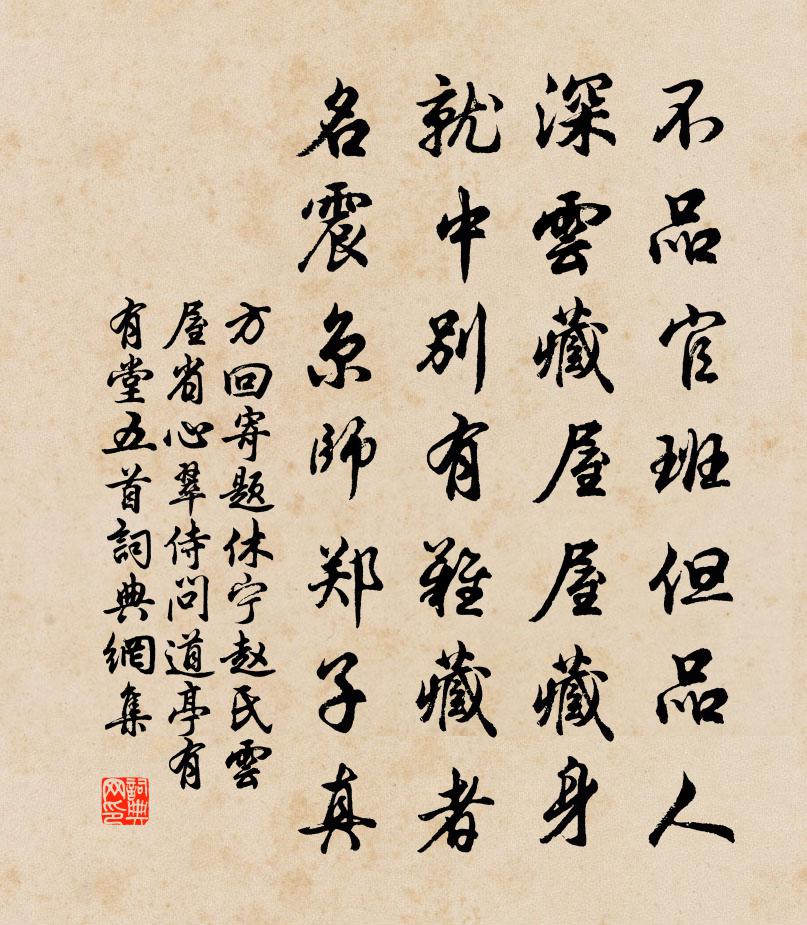 不品官班但品人
深雲藏屋屋藏身
就中别有難藏者
名震京師郑子真
方回寄题休宁赵氏雲
屋省心翠侍問道亭有
有堂五首詞典網集
詞典
网印